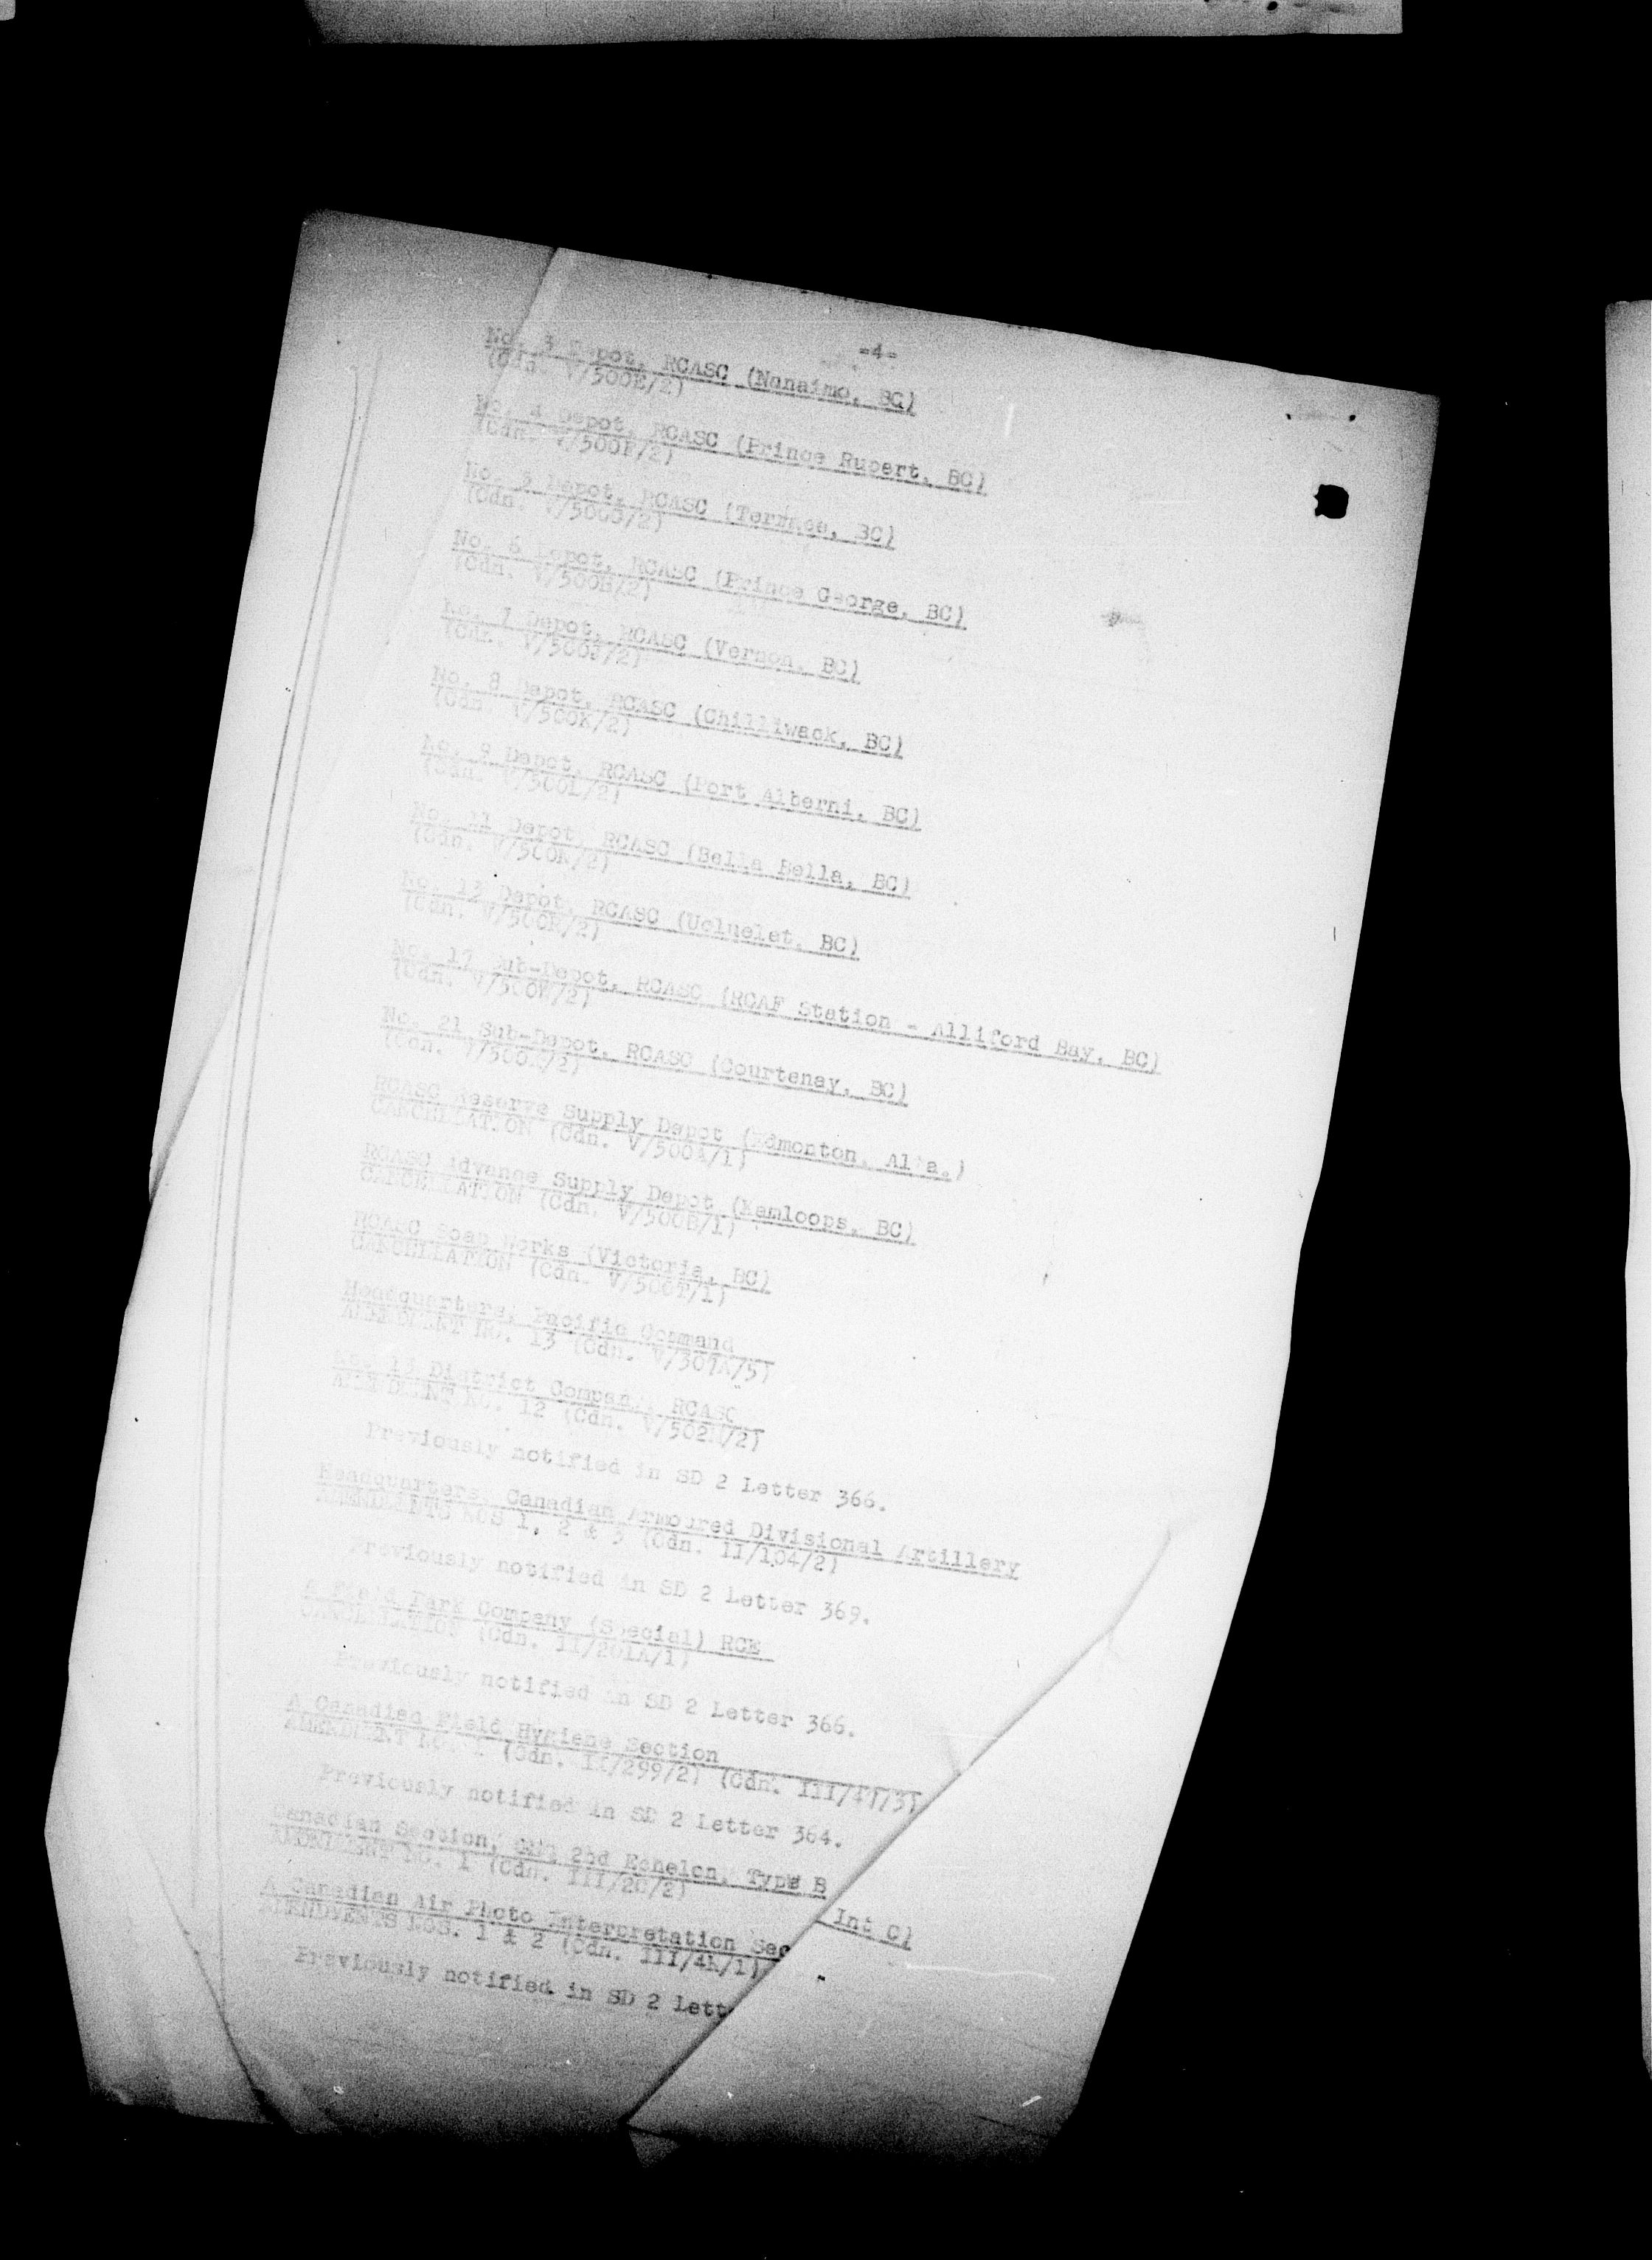 -4-
No. 3 Depot, RCASC (Nanaimo, BC)
(Cdn. V/500E/2)
No. 4 Depot, RCASC (Prince Rupert, BC)
(Cdn. V/500F/2)
No. 5 Depot, RCASC (Terrace, BC)
(Cdn. V/500G/2)
No. 6 Depot, RCASC (Prince George, BC)
(Cdn. V/500H/2)
No. 7 Depot, RCASC (Vernon, BC)
(Cdn. V/500J/2)
No. 8 Depot, RCASC (Chilliwack, BC)
(Cdn. V/500K/2)
No. 9 Depot, RCASC (Port Alberni, BC)
(Cdn. V/500L/2)
No. 11 Depot, RCASC (Bella Bella, BC)
(Cdn.
No. 13 Depot, RCASC (Ucluelet, BC)
(Cdn.
No. 17 Sub-Depot, RCASC (RCAF Station - Alliford Bay, BC)
(Cdn. V/500W/2)
No. 21 Sub-Depot, RCASC (Courtenay, BC)
(Cdn.
RCASC Reserve Supply Depot (Edmonton, Alta.)
CANCELLATION (Cdn. V/500A/1)
RCASC Advance Supply Depot (Kamloops, BC)
CANCELLATION (Cdn. V/500B/1)
RCASC Soap Works (Victoria, BC)
CANCELLATION (Cdn. V/500T/1)
Headquarters, Pacific Command
AMENDMENT NO. 13 (Cdn. V/307A/5)
No. 13 District Company, RCASC
AMENDMENT NO. 12 (Cdn.
Previously notified in SD 2 Letter 366.
Headquarters, Canadian Armoured Divisional Artillery
AMENDMENTS NOS 1, 2 & 3 (Cdn. II/104/2)
Previously notified in SD 2 Letter 369.
A Field Park Company (Special) RCE
CANCELLATION (Cdn. II/201A/1)
Previously notified in SD 2 Letter 366.
A Canadian Field Hygiene Section
AMENDMENT NO. 1 (Cdn. II/299/2) (Cdn. III/47/3)
Previously notified in SD 2 Letter 364.
Canadian Section, GHQ 2nd Echelon, Type B
AMENDMENT NO. 1 (Cdn. III/2C/2)
A Canadian Air Photo Interpretation Sec Int C)
AMENDMENTS NOS. 1 & 2 (Cdn. III/4K/1)
Previously notified in SD 2 Lett